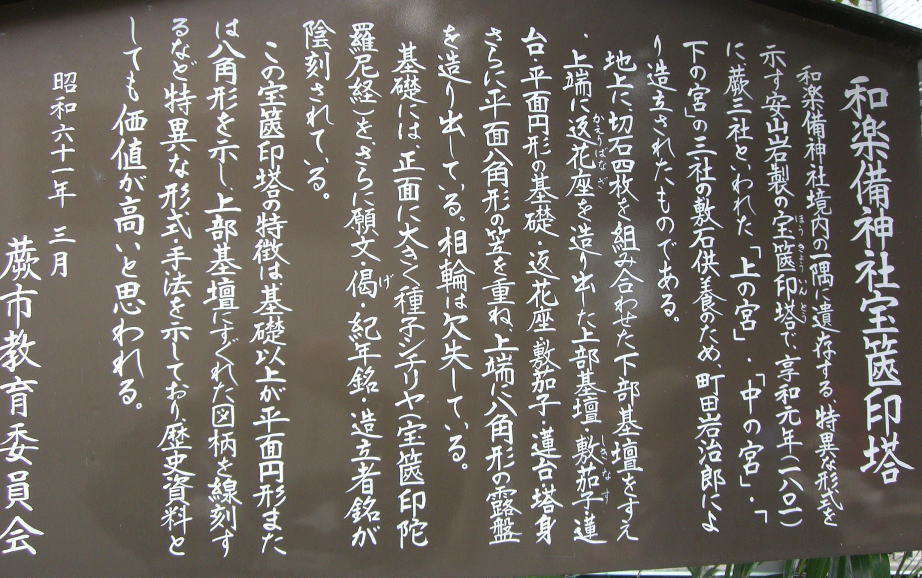 和楽備神社宝篋印塔
和楽備神社境内の一隅に遺存する、特異な形式を
示す安山岩製の宝篋印塔で、享和元年(一八〇一)
に蕨三社といわれた「上の宮」・「中の宮」・「
下の宮」の三社の敷石供養のため、町田岩治郎によ
り造立されたものである。
地上に切石四枚を組み合わせた下部基壇をすえ
・上端に返花座を造り出した上部基壇・敷茄子・蓮
台・平面円形の基礎・返花座・敷茄子・蓮台・塔身
さらに平面八角形の笠を重ね、上端に八角形の露盤
を造り出している。相輪は欠失している。
基礎には、正面に大きく種子シチリヤ(宝篋印陀
羅尼経)を、さらに願文・偈・紀年銘・造立者銘が
陰刻されている。
この宝篋印塔の特徴は、基礎以上が平面円形また
は八角形を示し、上部基壇にすぐれた図柄を線刻す
るなど特異な形式・手法を示しており歴史資料と
しても価値が高いと思われる。
昭和六十一年 三月
蕨市教育委員会